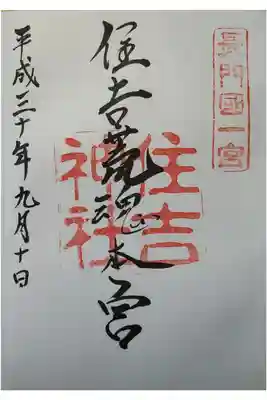 長門國一宮
住吉荒魂本宮
住吉神社
平成三十年九月十日